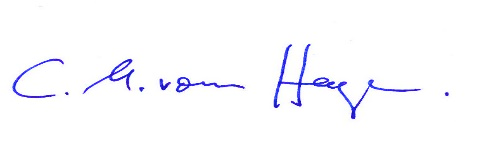 C. M. vom Hagen.